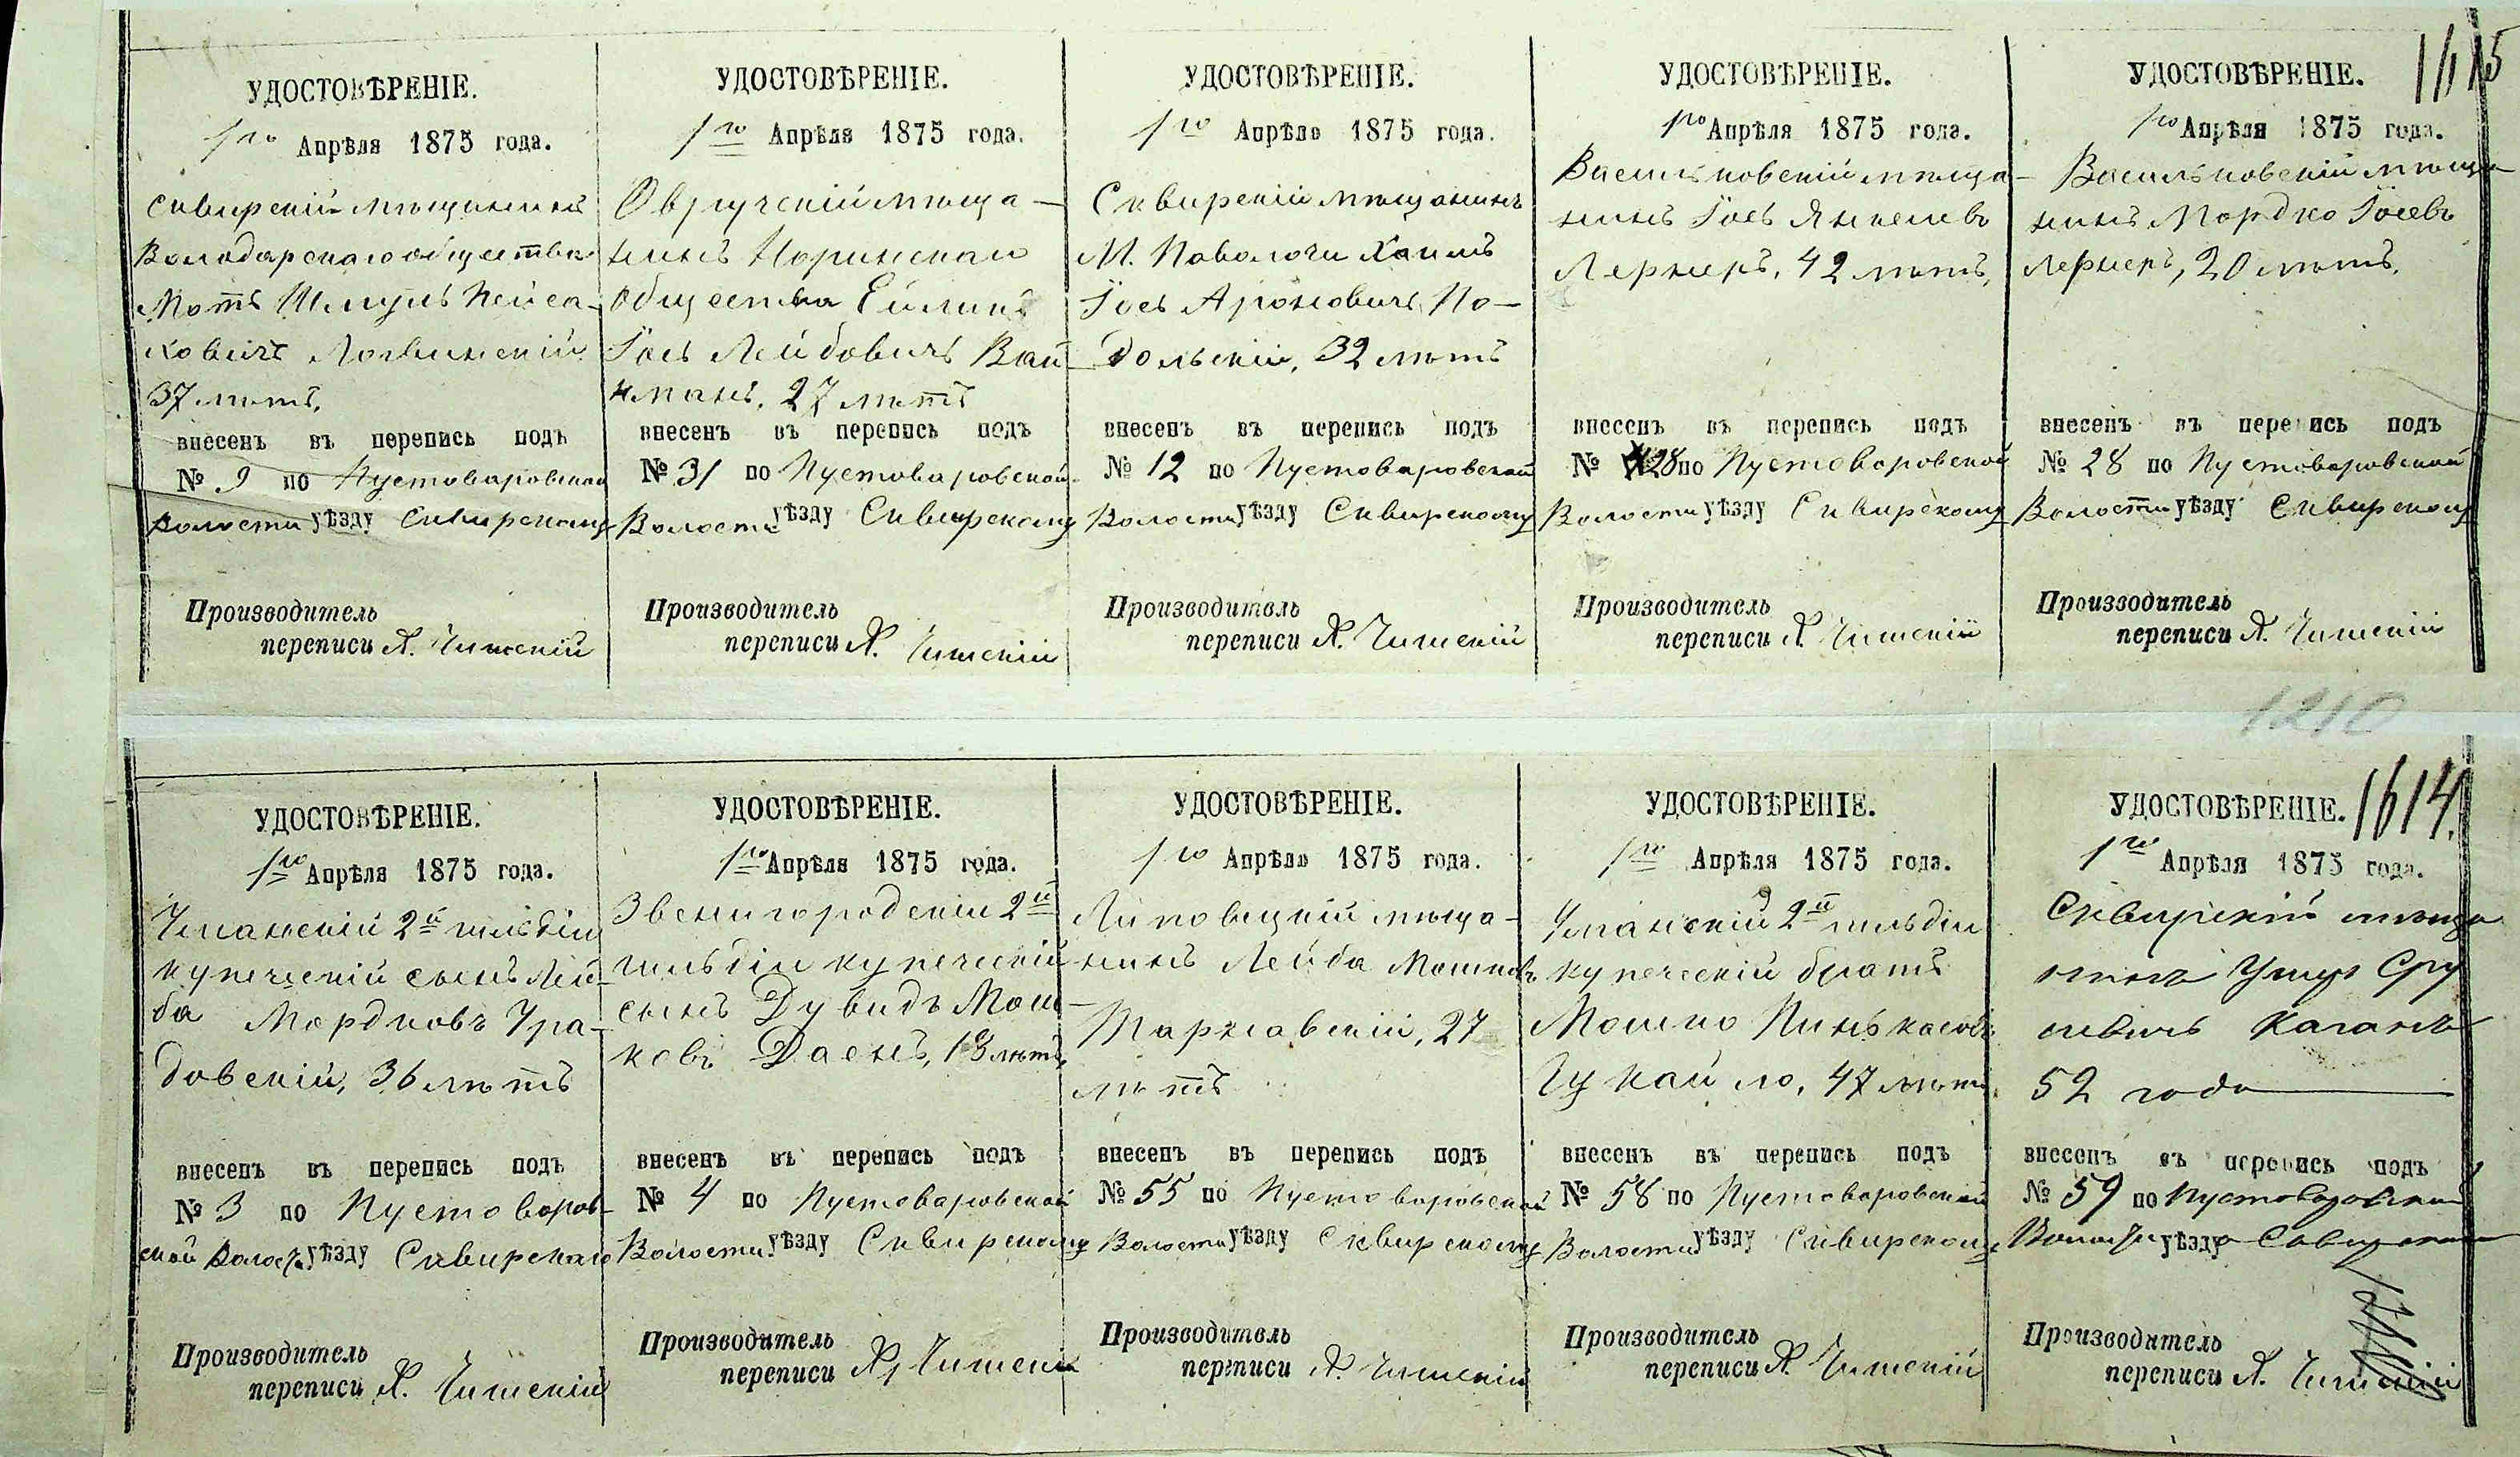 1615
УДОСТОВѢРЕНІЕ.
1го Апрѣля 1875 года.
Сквирскій мѣщанинъ
Володарскаго общества
Мотъ Шмуль Пейса-
ховичъ Логвинскій
37 лѣтъ,
внесенъ въ перепись подъ
№ 9 по Пустоваровской
Волости уѣзду Сквирскому
Производитель
переписи А. Чишскій
УДОСТОВѢРЕНІЕ.
1го Апрѣля 1875 года.
Овручскій мѣща-
нинъ Норинскаго
общества
Іось Лейбовичъ Вай-
нманъ, 27 лѣтъ
внесенъ въ перепись подъ
№ 31 по Пустоваровской
Волости уѣзду Сквирскому
Производитель
переписи А. Чишскій
УДОСТОВѢРЕНІЕ.
1го Апрѣля 1875 года.
Сквирскій мѣщанинъ
М. Паволочи Хаимъ
Іось Ароновичъ По-
дольскій, 32 лѣтъ
внесенъ въ перепись подъ
№ 12 по Пустоваровской
Волости уѣзду Сквирскому
Производитель
переписи А. Чишскій
УДОСТОВѢРЕНІЕ.
1го Апрѣля 1875 года.
Васильковскій мѣща-
нинъ Іось Янкелевъ
Лернеръ, 42 лѣтъ,
внесенъ въ перепись подъ
№ 28 по Пустоваровской
Волости уѣзду Сквирскому
Производитель
переписи А. Чишскій
УДОСТОВѢРЕНІЕ.
1го Апрѣля 1875 года.
Васильковскій мѣща-
нинъ Мордко Іосевъ
Лернеръ, 20 лѣтъ,
внесенъ въ перепись подъ
№ 28 по Пустоваровской
Волости уѣзду Сквирскому
Производитель
переписи А. Чишскій
1210
1614.
УДОСТОВѢРЕНІЕ.
1го Апрѣля 1875 года.
Уманскій 2й гильдіи
купеческій сынъ Лей-
ба Мордковъ Гра-
довскій, 36 лѣтъ
внесенъ въ перепись подъ
№ 3 по Пустоваров-
ской Волости уѣзду Сквирскаго
Производитель
переписи А. Чишскій
УДОСТОВѢРЕНІЕ.
1го Апрѣля 1875 года.
Звенигородскій 2й
гильдіи купеческій
сынъ Дувидъ Мош-
ковъ Даенъ, 18 лѣтъ,
внесенъ въ перепись подъ
№ 4 по Пустоваровской
Волости уѣзду Сквирскому
Производитель
переписи А. Чишскій
УДОСТОВѢРЕНІЕ.
1го Апрѣля 1875 года.
Липовецкій мѣща-
нинъ Лейба Мошковъ
Тарнавскій, 27
лѣтъ
внесенъ въ перепись подъ
№ 55 по Пустоваровской
Волости уѣзду Сквирскому
Производитель
переписи А. Чишскій
УДОСТОВѢРЕНІЕ.
1го Апрѣля 1875 года.
Уманскій 2й гильдіи
купеческій братъ
Мошко Пинькасовъ
Цукайло, 47 лѣтъ
внесенъ въ перепись подъ
№ 58 по Пустоваровской
Волости уѣзду Сквирскому
Производитель
переписи А. Чишскій
УДОСТОВѢРЕНІЕ.
1го Апрѣля 1875 года.
Сквирскій мѣща
нинъ Сру
левичъ Каганъ
52 года
внесенъ въ перепись подъ
№ 59 по Пустоваровской
Волости уѣзду Сквирскому
Производитель
переписи А. Чишскій